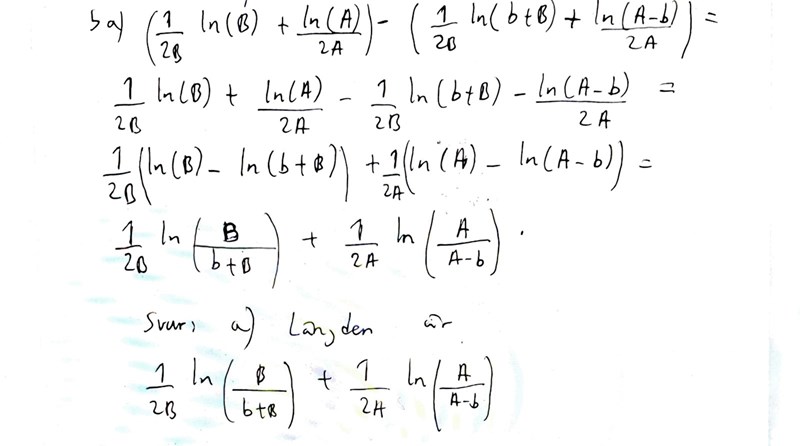 5 a) (1/2B ln(B) + ln(A)/2A) - (1/2B ln(b+B) + ln(A-b)/2A) =
1/2B ln(B) + ln(A)/2A - 1/2B ln(b+B) - ln(A-b)/2A =
1/2B (ln(B) - ln(b+B)) + 1/2A (ln(A) - ln(A-b)) =
1/2B ln(B/b+B) + 1/2A ln(A/A-b) .
Svar: a) Längden är
1/2B ln(B/b+B) + 1/2A ln(A/A-b)